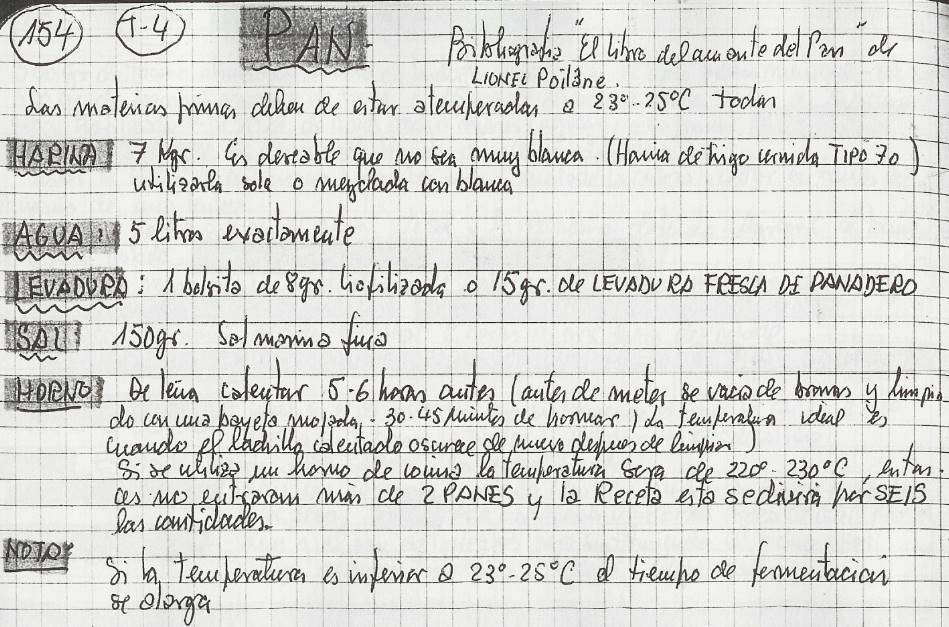 154 T-4 PAN- Bibliografia "El libro del amante del Pan" de
LIONEL Poilâne.
Las materias primas deben de estar atemperadas a 23º-25ºC todas
HARINA 7 Kgr. Es deseable que no sea muy blanca. (Harina de trigo cernida TIPO 70)
utilizarla sola o mezclada con blanca
AGUA: 5 litros exactamente
LEVADURA: 1 bolsita de 8gr. liofilizada o 15gr. de LEVADURA FRESCA DE PANADERO
SAL: 150gr. Sal marina fina
HORNO De leña calentar 5-6 horas antes (antes de meter se vacia de bromas y limpia
do con una bayeta mojada, - 30-45 minutos de hornear) La temperatura ideal es
cuando el ladrillo calentado oscurece de nuevo despues de limpiar)
Si se utiliza un horno de cocina la temperatura sera de 220º-230ºC, enton-
ces no entraran más de 2 PANES y la Receta esta se divirá por SEIS
las cantidades.
NOTA:
Si la temperatura es inferior a 23º-25ºC el tiempo de fermentacion
se alarga